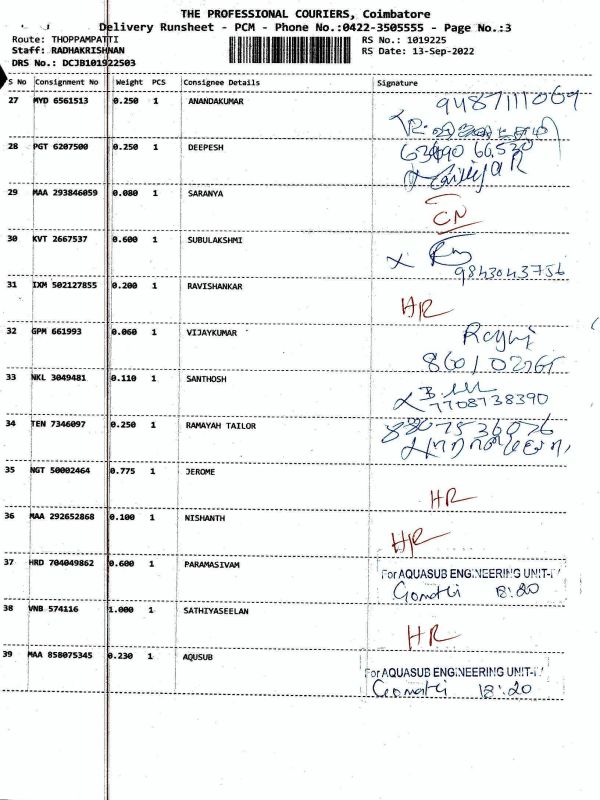 THE PROFESSIONAL COURIERS, Coimbatore
Delivery Runsheet - PCM - Phone No.:0422-3505555 - Page No.:3
Route: THOPPAMPATTI RS No.: 1019225
Staff: RADHAKRISHNAN RS Date: 13-Sep-2022
DRS No.: DCJB101922503
S No Consignment No Weight PCS Consignee Details Signature
27 MYD 6561513 0.250 1 ANANDAKUMAR 9487111069
28 PGT 6207500 0.250 1 DEEPESH
29 MAA 293846059 0.080 1 SARANYA CN
30 KVT 2667537 0.600 1 SUBULAKSHMI
9843043756
31 IXM 502127855 0.200 1 RAVISHANKAR HR
32 GPM 661993 0.060 1 VIJAYKUMAR
33 NKL 3049481 0.110 1 SANTHOSH
7708738390
34 TEN 7346097 0.250 1 RAMAYAH TAILOR 8807536076
35 NGT 50002464 0.775 1 JEROME HR
36 MAA 292652868 0.100 1 NISHANTH HR
37 HRD 704049862 0.600 1 PARAMASIVAM For AQUASUB ENGINEERING UNIT-
Gomathi
38 VNB 574116 1.000 1 SATHIYASEELAN HR
39 MAA 858075345 0.230 1 AQUSUB For AQUASUB ENGINEERING UNIT-
Gomathi